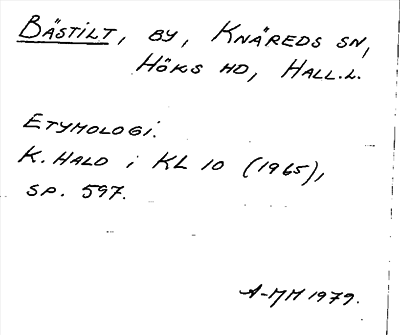 BÄSTILT, BY, KNÄREDS SN,
HÖKS HD, HALL.L.
ETYMOLOGI.
K. HALD i KL 10 (1965),
SP. 597.
A-MM 1979.